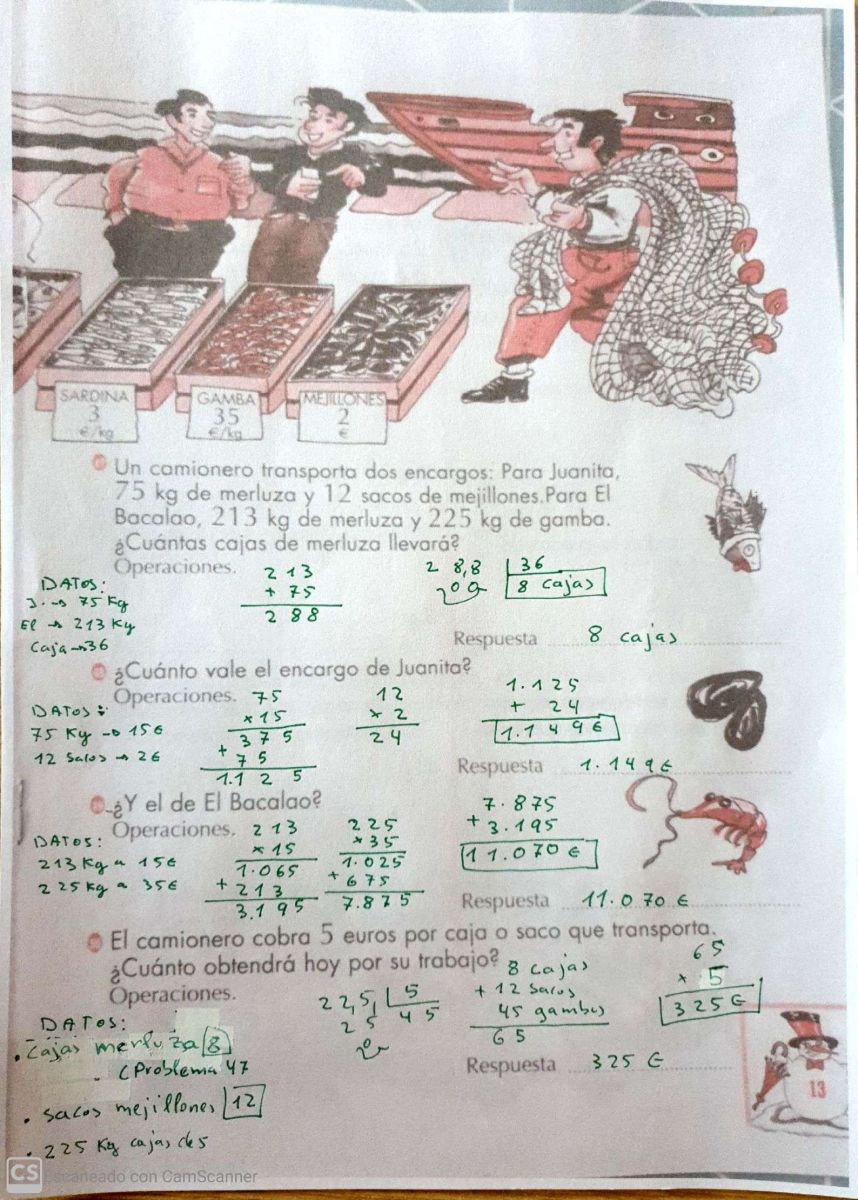 SARDINA
3
€/kg
GAMBA
35
€/kg
MEJILLONES
2
€
Un camionero transporta dos encargos: Para Juanita,
75 kg de merluza y 12 sacos de mejillones.Para El
Bacalao, 213 kg de merluza y 225 kg de gamba.
¿Cuántas cajas de merluza llevará?
Operaciones.
DATOS:
J. → 75 Kg
El → 213 Kg
Caja → 36
213
+ 75
288
28,8 36
00 8 cajas
Respuesta 8 cajas
¿Cuánto vale el encargo de Juanita?
Operaciones.
DATOS:
75 Kg → 15€
12 Sacos → 2€
75
x15
375
+ 75
1.125
12
x 2
24
1.125
+ 24
1.149€
Respuesta 1.149€
¿Y el de El Bacalao?
Operaciones.
DATOS:
213 Kg → 15€
225 kg → 35€
213
x15
1.065
+213
3.195
225
x35
1.025
+675
7.875
7.875
+3.195
11.070 €
Respuesta 11.070 €
El camionero cobra 5 euros por caja o saco que transporta.
¿Cuánto obtendrá hoy por su trabajo?
Operaciones.
DATOS:
. Cajas merluza 8
. (Problema 47
. sacos mejillones 12
. 225 Kg cajas de 5
22,5 5
25 45
0
8 cajas
+ 12 sacos
45 gambas
65
65
x 5
325€
Respuesta 325 €
13
CS Escaneado con CamScanner